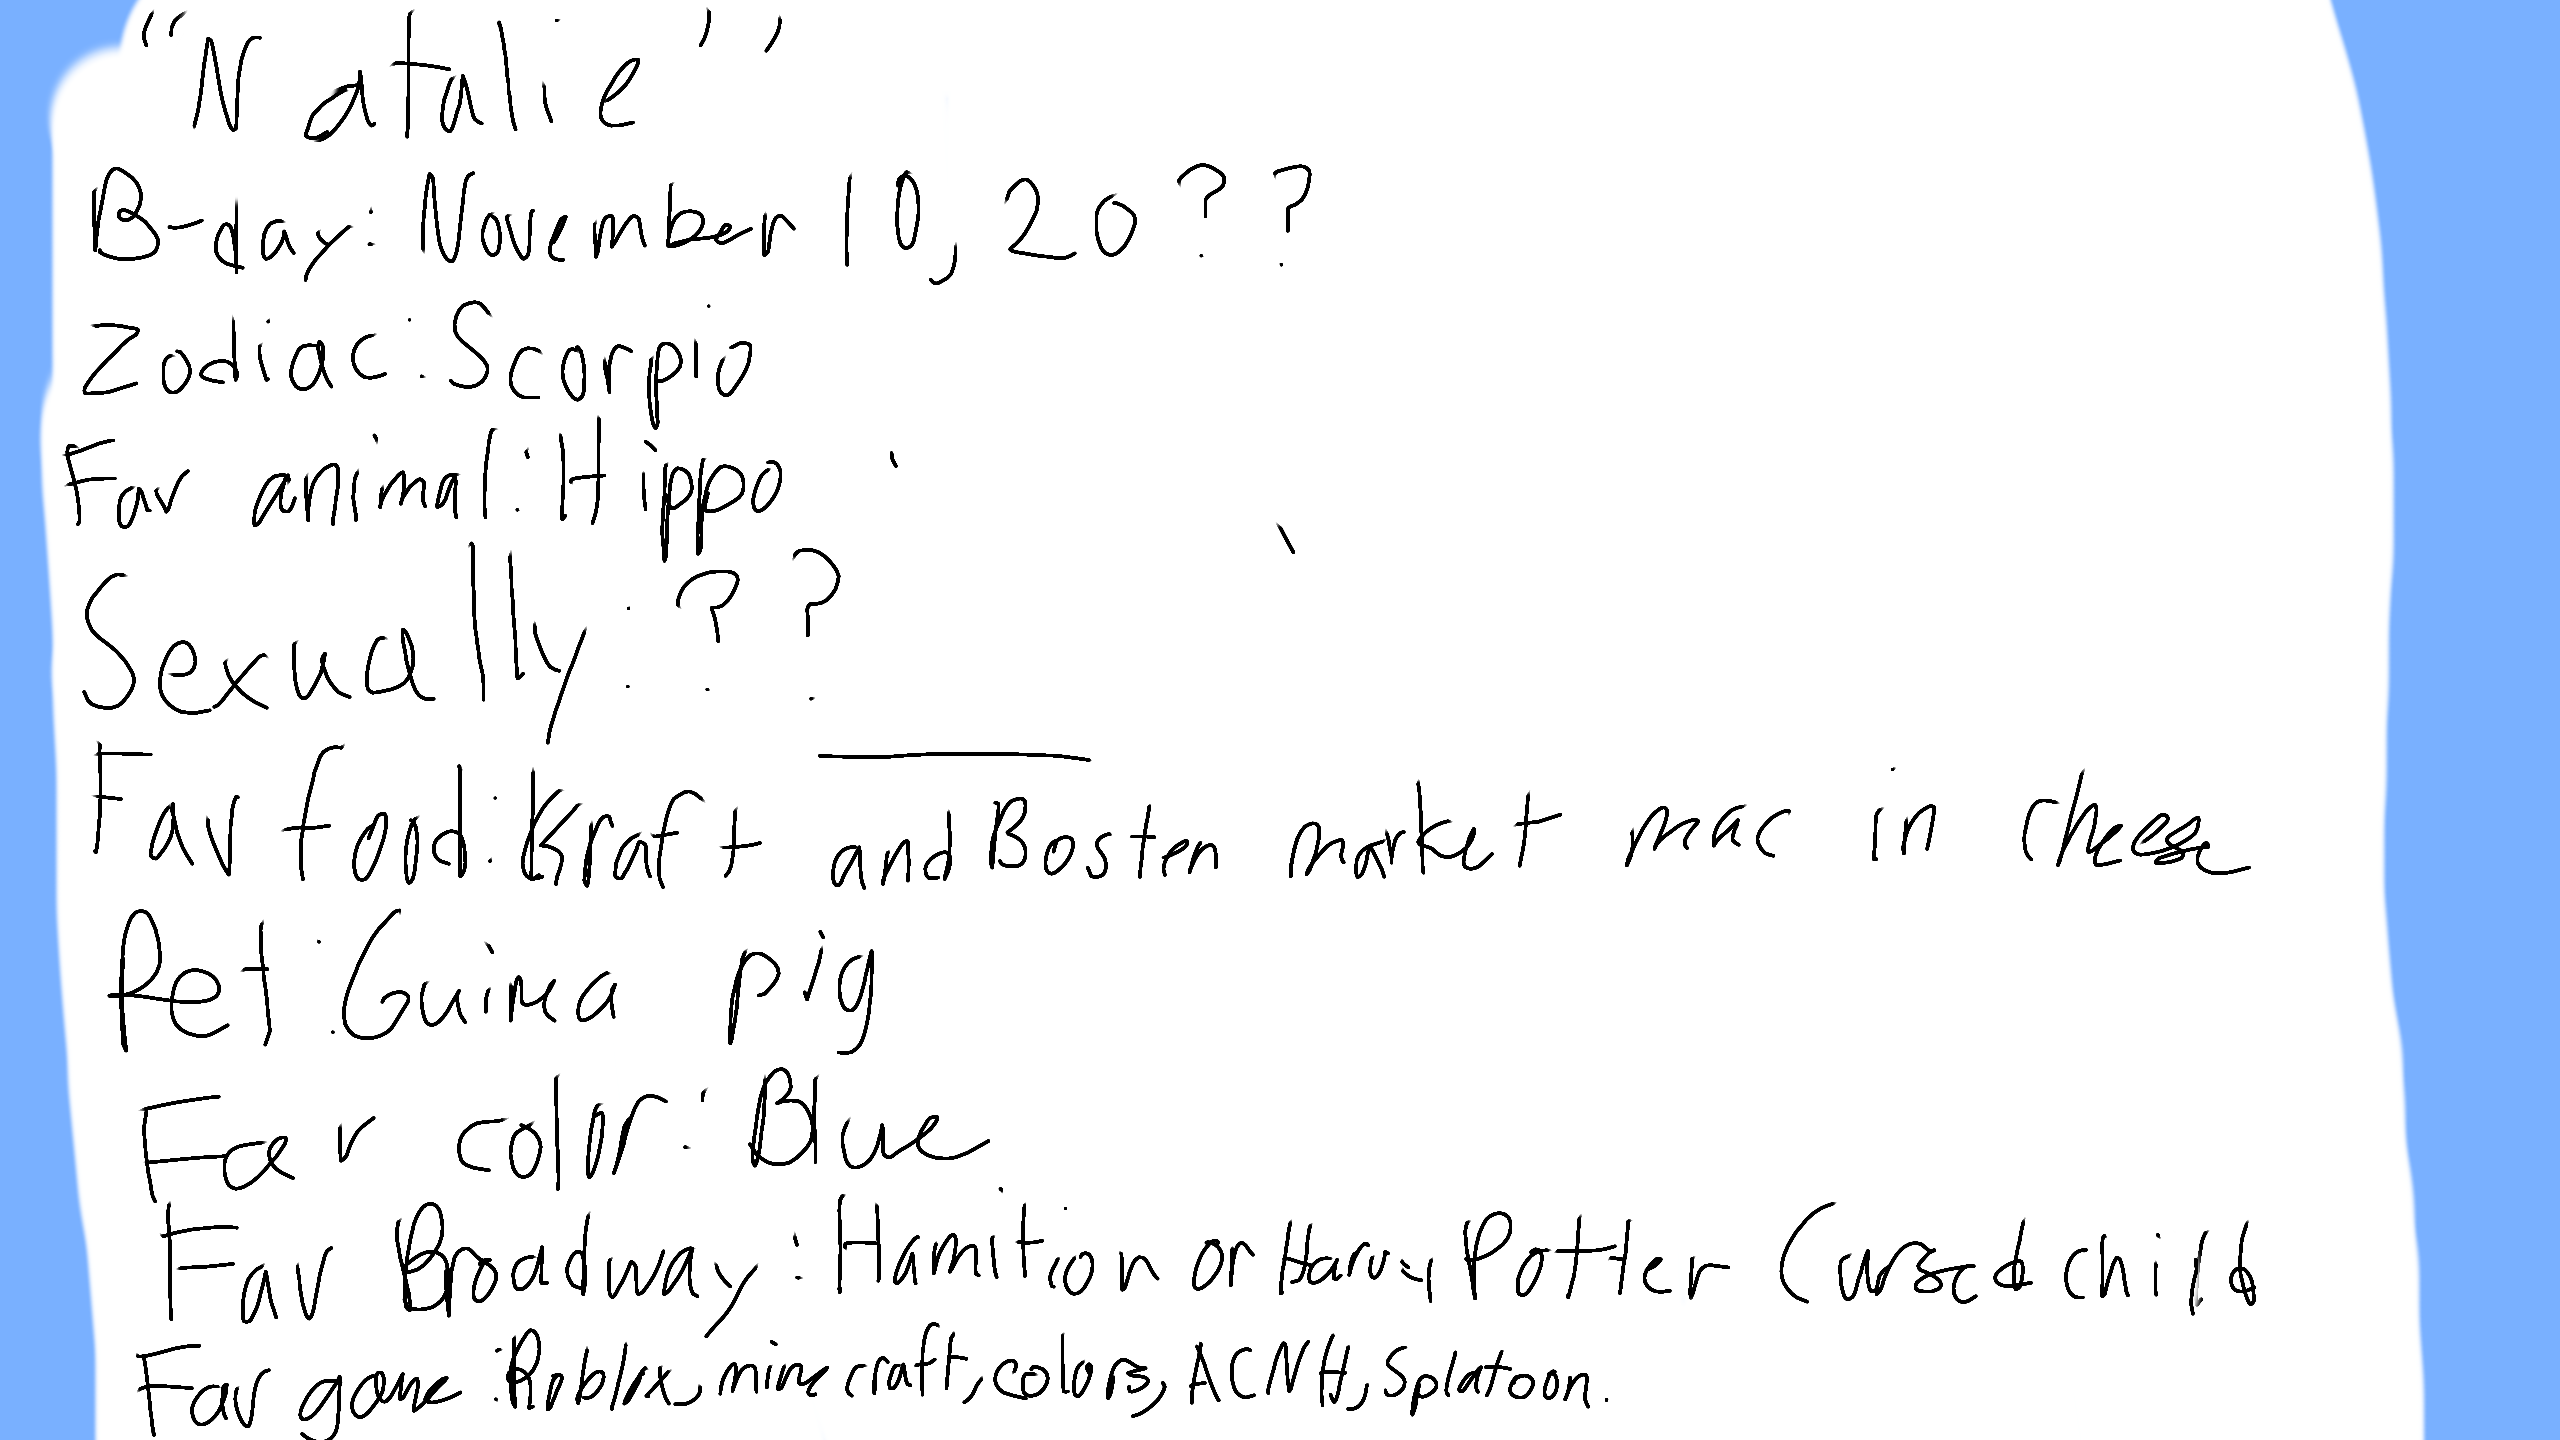 "Natalie"
B-day: November 10, 20??
Zodiac: Scorpio
Fav animal: Hippo
Sexually: ??
Fav food: Kraft and Bosten market mac in cheese
Pet: Guinea pig
Fav color: Blue
Fav Broadway: Hamition or Harry Potter Cursed child
Fav game: Roblox, minecraft, colors, ACNH, Splatoon.